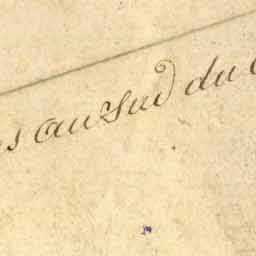 s au Sud du